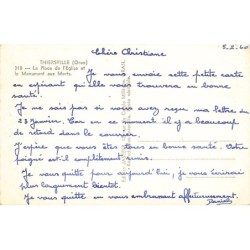 Chère Christiane
5.2.60
THIERSVILLE (Oran)
318 - La Place de l'Eglise et
le Monument aux Morts.
Je vous envoie cette petite carte
en espérant qu'elle vous trouvera en bonne
santé.
Je ne sais pas si vous avez reçu ma lettre du
23 Janvier. Car en ce moment il y a beaucoup
de retard dans le courrier.
J'espère que vous êtes tous en bonne santé. Votre
poignet est il complètement remis.
Je vous quitte pour aujourd'hui, je vous écrirai
plus longuement bientôt.
Je vous quitte en vous embrassant affectueusement.
Danielle